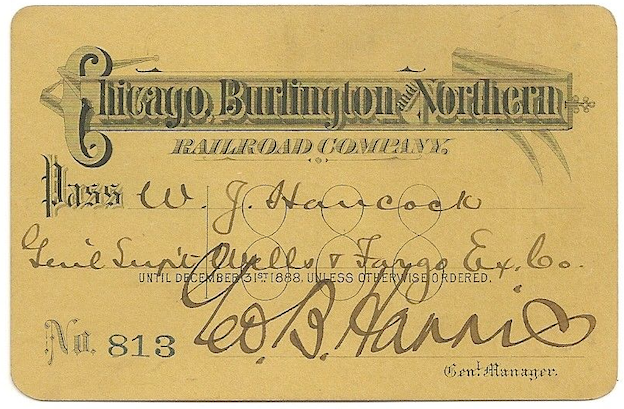 Chicago, Burlington and Northern
RAILROAD COMPANY.
Pass W. J. Hancock
1888
Gen'l Sup't Wells & Fargo Ex. Co.
UNTIL DECEMBER 31ST 1888, UNLESS OTHERWISE ORDERED.
Geo. B. Harris
No. 813
Genl. Manager.